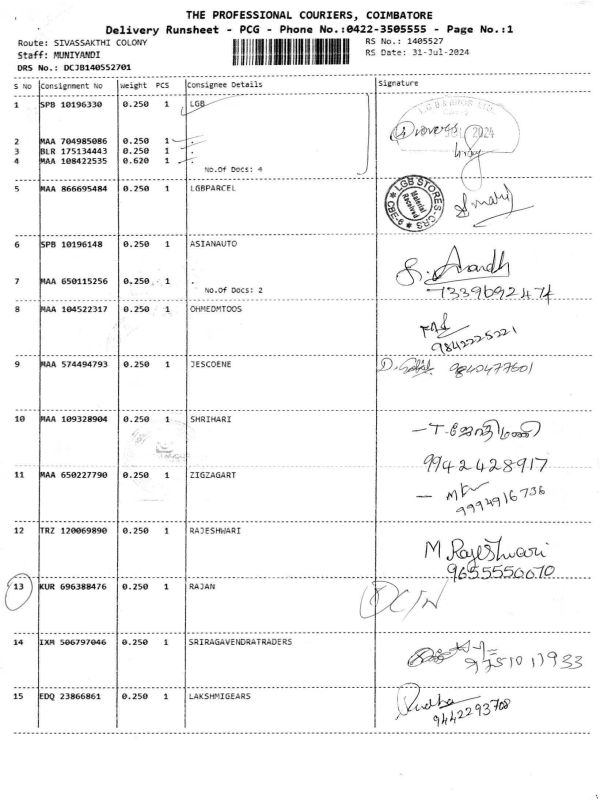 THE PROFESSIONAL COURIERS, COIMBATORE
Delivery Runsheet - PCG - Phone No.:0422-3505555 - Page No.:1
Route: SIVASSAKTHI COLONY
RS No.: 1405527
Staff: MUNIYANDI
RS Date: 31-Jul-2024
DRS No.: DCJB140552701
S No Consignment No Weight PCS Consignee Details Signature
1 SPB 10196330 0.250 1 LGB
2 MAA 704985086 0.250 1 .
3 BLR 175134443 0.250 1 .
4 MAA 108422535 0.620 1 .
No.Of Docs: 4
2024
5 MAA 866695484 0.250 1 LGBPARCEL
LGB STORES-CRS
CBE-6
Material
Received
6 SPB 10196148 0.250 1 ASIANAUTO
7 MAA 650115256 0.250 1 .
No.Of Docs: 2
S. Anandh
7339692474
8 MAA 104522317 0.250 1 OHMEDMTOOS
9842225221
9 MAA 574494793 0.250 1 JESCOENE
9840477601
10 MAA 109328904 0.250 1 SHRIHARI
9942428917
11 MAA 650227790 0.250 1 ZIGZAGART
9994916736
12 TRZ 120069890 0.250 1 RAJESHWARI
M. Rajeshwari
9655550070
13 KUR 696388476 0.250 1 RAJAN
14 IXM 506797046 0.250 1 SRIRAGAVENDRATRADERS
15 EDQ 23866861 0.250 1 LAKSHMIGEARS
9442293708